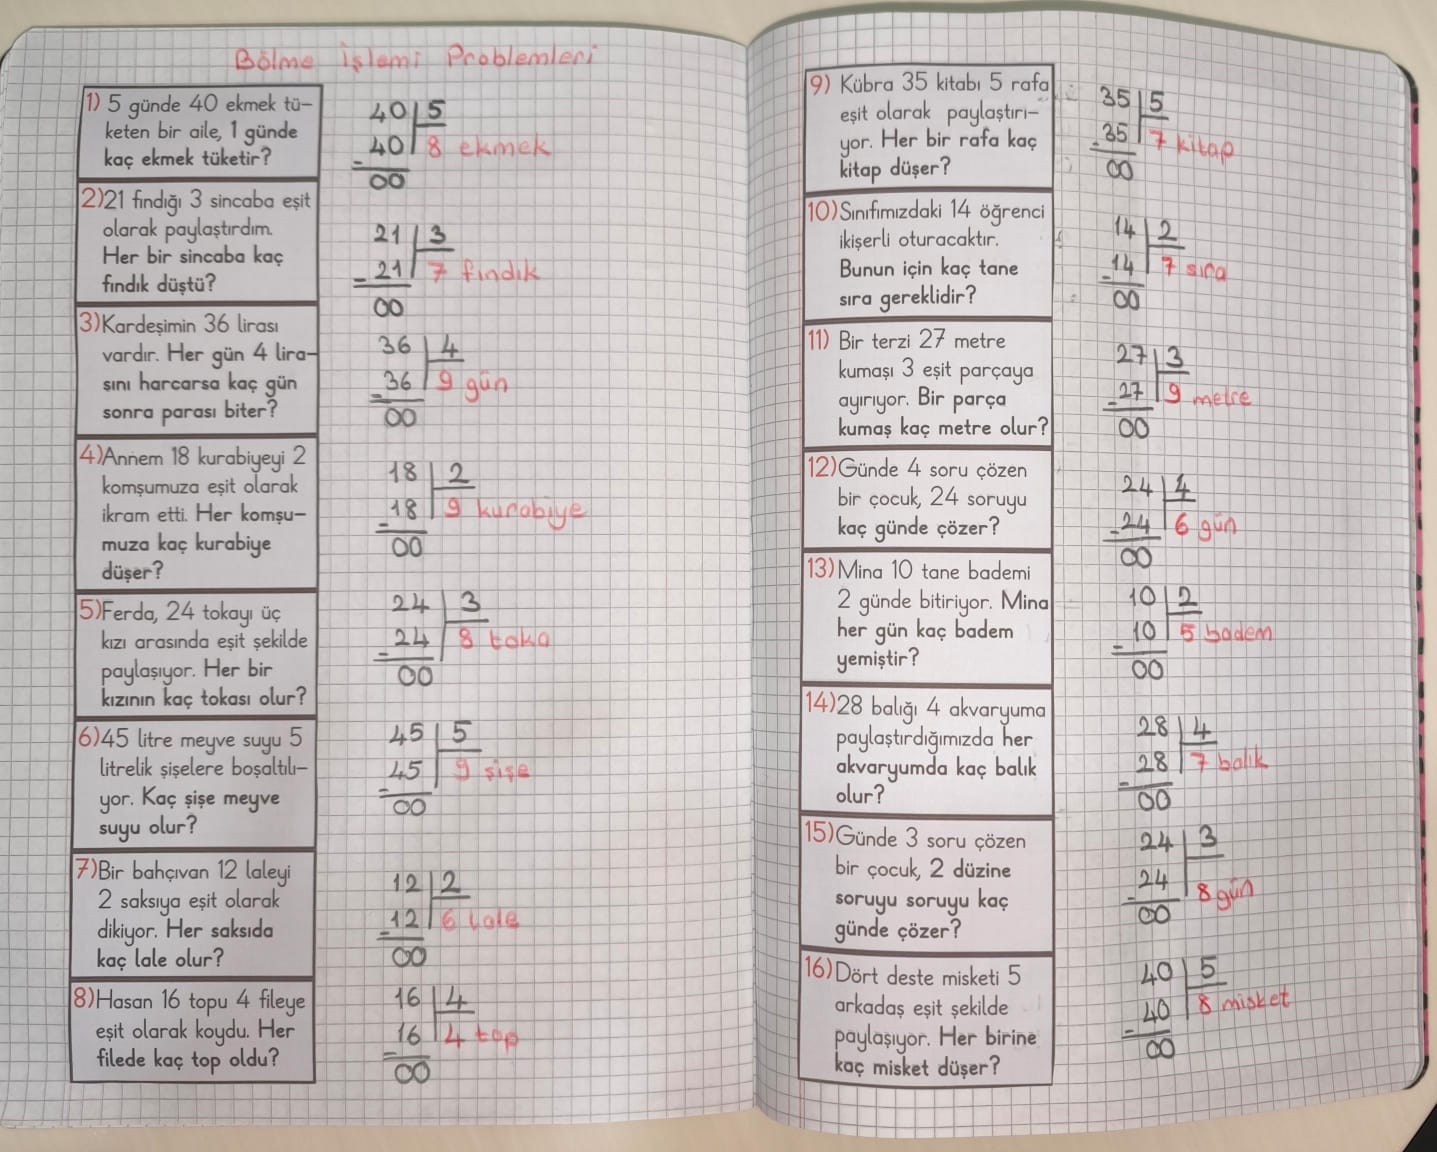 Bölme İşlemi Problemleri
1) 5 günde 40 ekmek tü-
keten bir aile, 1 günde
kaç ekmek tüketir?
40 5
- 40 8 ekmek
00
2)21 fındığı 3 sincaba eşit
olarak paylaştırdım.
Her bir sincaba kaç
fındık düştü?
21 3
- 21 7 fındık
00
3)Kardeşimin 36 lirası
vardır. Her gün 4 lira-
sını harcarsa kaç gün
sonra parası biter?
36 4
- 36 9 gün
00
4)Annem 18 kurabiyeyi 2
komşumuza eşit olarak
ikram etti. Her komşu-
muza kaç kurabiye
düşer?
18 2
- 18 9 kurabiye
00
5)Ferda, 24 tokayı üç
kızı arasında eşit şekilde
paylaşıyor. Her bir
kızının kaç tokası olur?
24 3
- 24 8 toka
00
6)45 litre meyve suyu 5
litrelik şişelere boşaltılı-
yor. Kaç şişe meyve
suyu olur?
45 5
- 45 9 şişe
00
7)Bir bahçıvan 12 laleyi
2 saksıya eşit olarak
dikiyor. Her saksıda
kaç lale olur?
12 2
- 12 6 lale
00
8)Hasan 16 topu 4 fileye
eşit olarak koydu. Her
filede kaç top oldu?
16 4
- 16 4 top
00
9) Kübra 35 kitabı 5 rafa
eşit olarak paylaştırı-
yor. Her bir rafa kaç
kitap düşer?
35 5
- 35 7 kitap
00
10)Sınıfımızdaki 14 öğrenci
ikişerli oturacaktır.
Bunun için kaç tane
sıra gereklidir?
14 2
- 14 7 sıra
00
11) Bir terzi 27 metre
kumaşı 3 eşit parçaya
ayırıyor. Bir parça
kumaş kaç metre olur?
27 3
- 27 9 metre
00
12)Günde 4 soru çözen
bir çocuk, 24 soruyu
kaç günde çözer?
24 4
- 24 6 gün
00
13)Mina 10 tane bademi
2 günde bitiriyor. Mina
her gün kaç badem
yemiştir?
10 2
- 10 5 badem
00
14)28 balığı 4 akvaryuma
paylaştırdığımızda her
akvaryumda kaç balık
olur?
28 4
- 28 7 balık
00
15)Günde 3 soru çözen
bir çocuk, 2 düzine
soruyu soruyu kaç
günde çözer?
24 3
- 24 8 gün
00
16)Dört deste misketi 5
arkadaş eşit şekilde
paylaşıyor. Her birine
kaç misket düşer?
40 5
- 40 8 misket
00